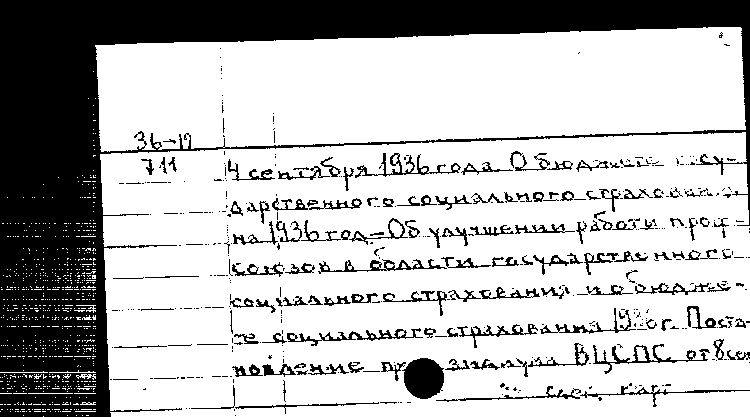 36-19
711
4 сентября 1936 года О бюджете госу-
дарственного социального страхования
на 1936 год - Об улучшении работы проф-
союзов в области государственного
социального страхования и о бюдже-
те социального страхования 1936 г. Поста-
новление президиума ВЦСПС от 8 сен
след. карт